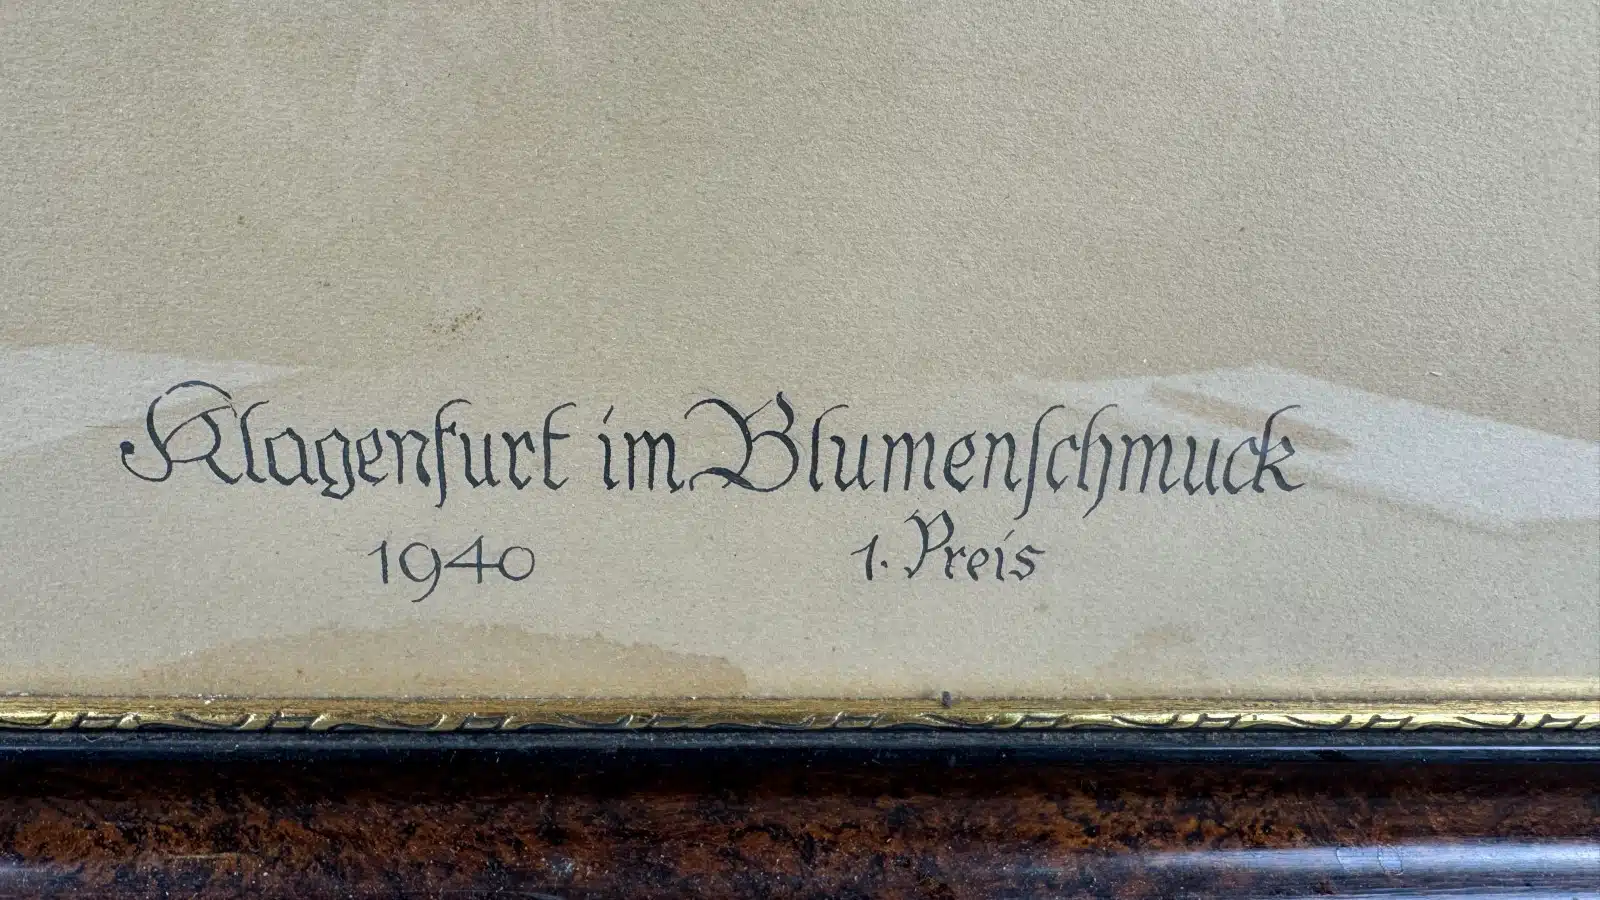 Klagenfurt im Blumenſchmuck
1940 1. Preis